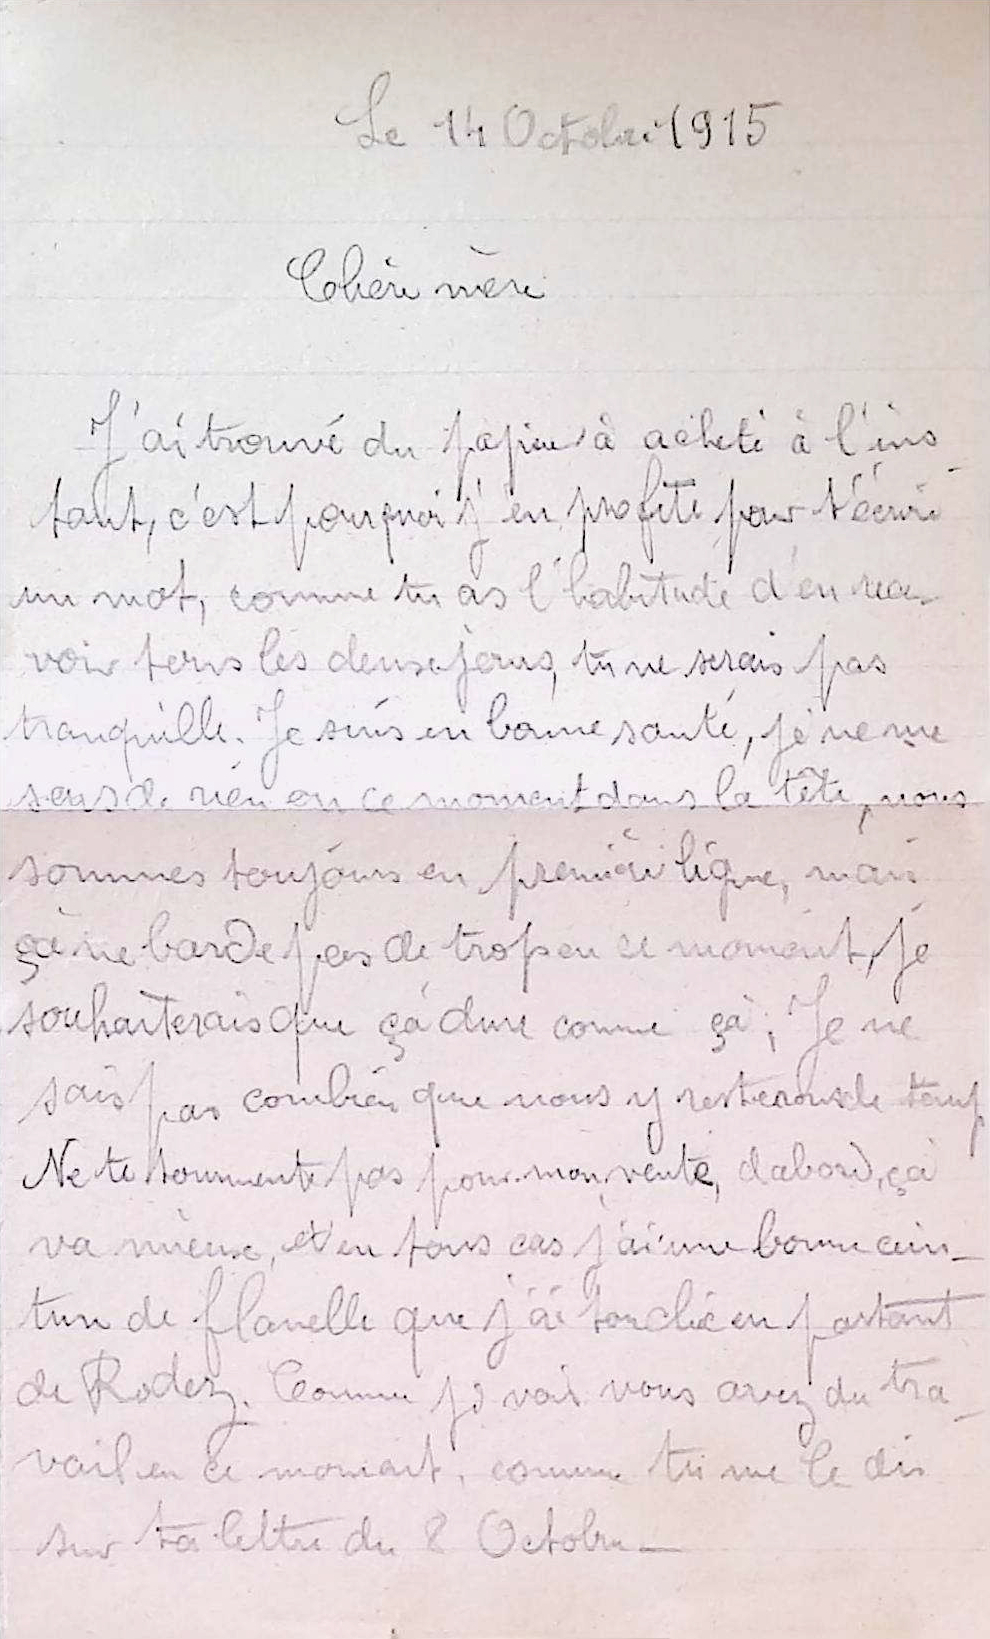 Le 14 Octobre 1915
Chère mère
J'ai trouvé du papier à acheté à l'ins
tant, c'est pourquoi j'en profite pour t'écrire
un mot, comme tu as l'habitude d'en rece-
voir tous les deux jours, tu ne serais pas
tranquille. Je suis en bonne santé, je ne me
sens de rien en ce moment dans la tête, nous
sommes toujours en première ligne, mais
çà ne barde pas de trop en ce moment, je
souhaiterais que çà dure comme çà, Je ne
sais pas combien que nous y resterons de temp
Ne te tourmente pas pour mon ventre, dabord, çà
va mieux, et en tous cas j'ai une bonne cein-
ture de flanelle que j'ai touchée en partant
de Rodez. Comme je vois vous avez du tra-
vail en ce moment, comme tu me le dis
sur ta lettre du 8 Octobre_